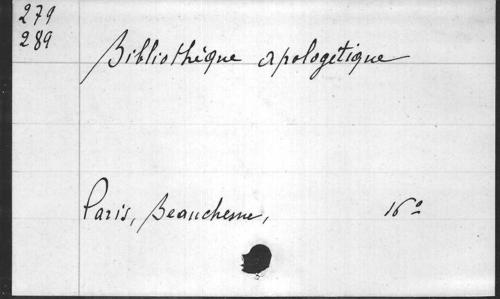 279
289
Bibliothèque apologétique
Paris, Beauchesne, 16º